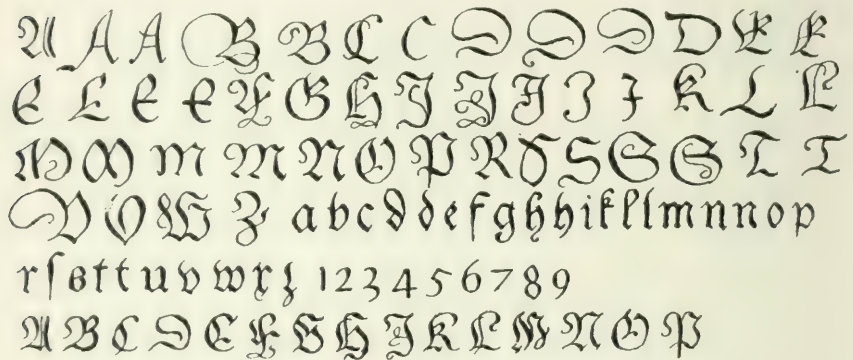 A A A B B C C D D D D E E
E E E E F G H J J J J J K L L
M M M M N O P R S S S S T T
V V W Z a b c d d e f g h h i k l l m n n n o p
r ſ s t t u v w x z 1 2 3 4 5 6 7 8 9
A B C D E F G H J K L M N O P